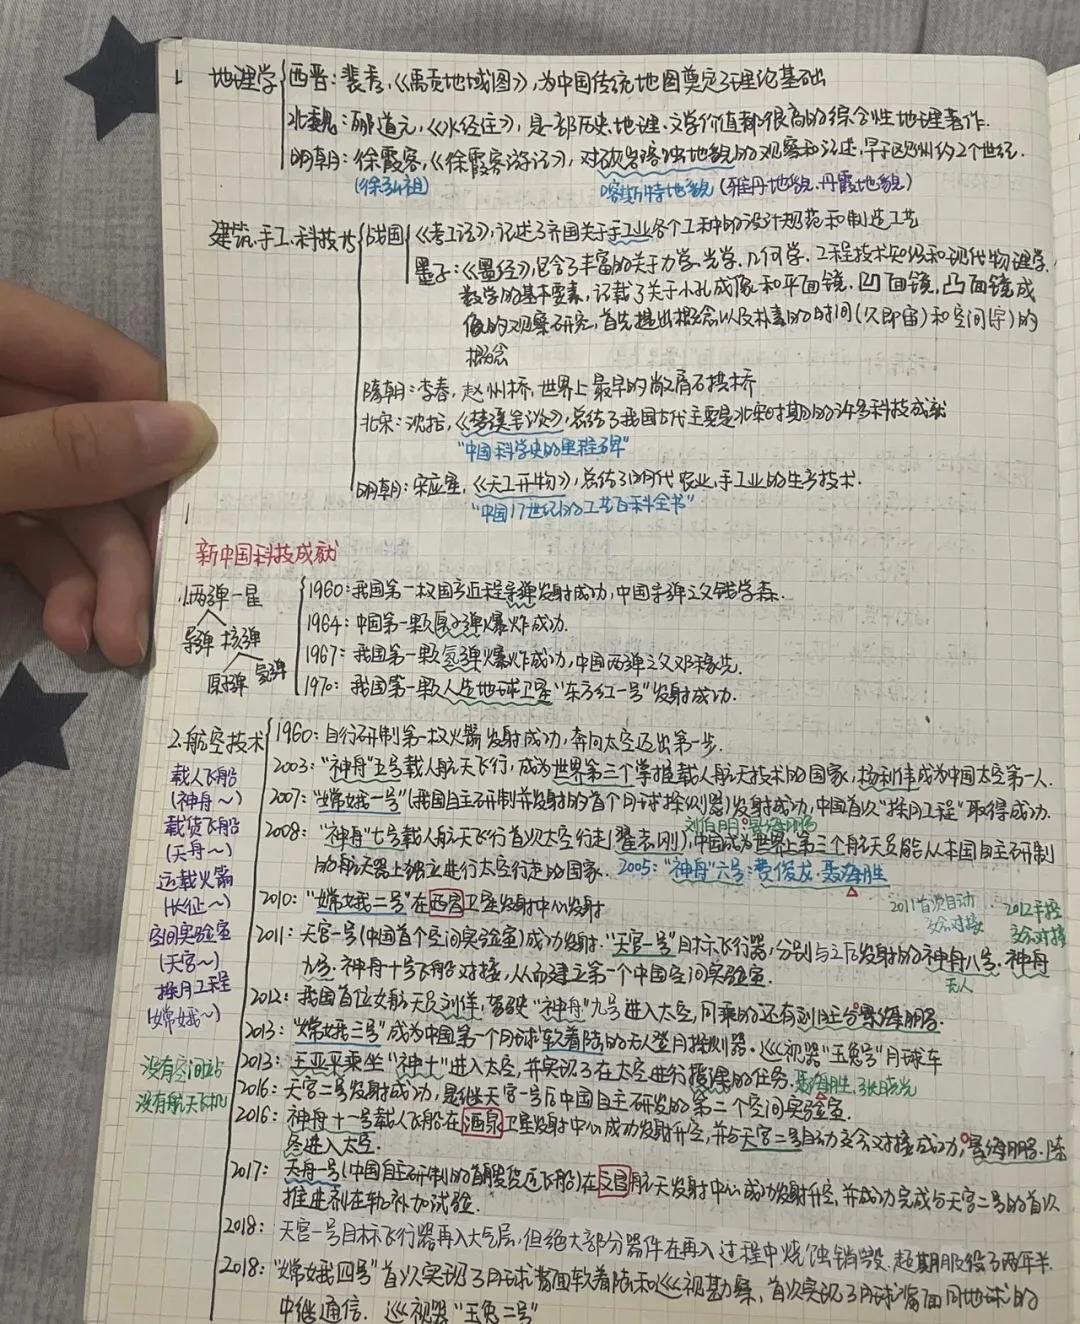 1. 地理学 西晋：裴秀，《禹贡地域图》，为中国传统地图奠定了理论基础
北魏：郦道元，《水经注》，是一部历史、地理、文学价值都很高的综合性地理著作.
明朝：徐霞客，《徐霞客游记》，对石灰岩溶蚀地貌的观察和记述，早于欧州约2个世纪.
(徐弘祖) 喀斯特地貌 (雅丹地貌、丹霞地貌)
建筑、手工、科技 战国 《考工记》，记述了齐国关于手工业各个工种的设计规范和制造工艺
墨子：《墨经》，包含了丰富的关于力学、光学、几何学、工程技术知识和现代物理学、
数学的基本要素，记载了关于小孔成像和平面镜，凹面镜，凸面镜成
像的观察研究，首先提出概念以及朴素的时间(久即宙)和空间(宇)的
概念
隋朝：李春，赵州桥，世界上最早的敞肩石拱桥
北宋：沈括，《梦溪笔谈》，总结了我国古代主要是北宋时期的许多科技成就
"中国科学史的里程碑"
明朝：宋应星，《天工开物》，总结了明代农业、手工业的生产技术.
"中国17世纪的工艺百科全书"
新中国科技成就
1.两弹一星 1960：我国第一枚国产近程导弹发射成功，中国导弹之父钱学森.
1964：中国第一颗原子弹爆炸成功.
导弹 核弹
1967：我国第一颗氢弹爆炸成功，中国两弹之父邓稼先.
原子弹 氢弹
1970：我国第一颗人造地球卫星"东方红一号"发射成功.
2.航空技术 1960：自行研制第一枚火箭发射成功，奔向太空迈出第一步.
载人飞船 2003："神舟"五号载人航天飞行，成为世界第三个掌握载人航天技术的国家，杨利伟成为中国太空第一人.
(神舟～) 2007："嫦娥一号"(我国自主研制并发射的首个月球探测器)发射成功，中国首次"探月工程"取得成功.
载货飞船 刘伯明、景海鹏
2008："神舟"七号载人航天飞行首次太空行走(翟志刚)，中国成为世界上第三个航天员能从本国自主研制
(天舟～) 的航天器上独立进行太空行走的国家. 2005："神舟"六号：费俊龙、聂海胜
运载火箭
(长征～) 2010："嫦娥二号"在西昌卫星发射中心发射
2011首次自动交会对接 2012手控交会对接
空间实验室 2011：天宫一号(中国首个空间实验室)成功发射."天宫一号"目标飞行器，分别与之后发射的神舟八号、神舟
(天宫～) 九号、神舟十号飞船对接，从而建立第一个中国空间实验室.
无人
探月工程 2012：我国首位女航天员刘洋，驾驶"神舟"九号进入太空，同乘的还有刘旺、景海鹏.
(嫦娥～) 2013："嫦娥三号"成为中国第一个月球软着陆的无人登月探测器。巡视器"玉兔号"月球车
没有空间站 2013：王亚平乘坐"神十"进入太空，并实现了在太空进行授课的任务.聂海胜、张晓光
没有航天飞机 2016：天宫二号发射成功，是继天宫一号后中国自主研发的第二个空间实验室.
2016：神舟十一号载人飞船在酒泉卫星发射中心成功发射升空，并与天宫二号自动交会对接成功，景海鹏、陈
冬进入太空.
2017：天舟一号(中国自主研制的首艘货运飞船)在文昌航天发射中心成功发射升空，并成功完成与天宫二号的首次
推进剂在轨补加试验.
2018：天宫一号目标飞行器再入大气层，但绝大部分器件在再入过程中烧蚀销毁，超期服役了两年半.
2018："嫦娥四号"首次实现了月球背面软着陆和巡视勘察，首次实现了月球背面同地球的
中继通信. 巡视器"玉兔二号"